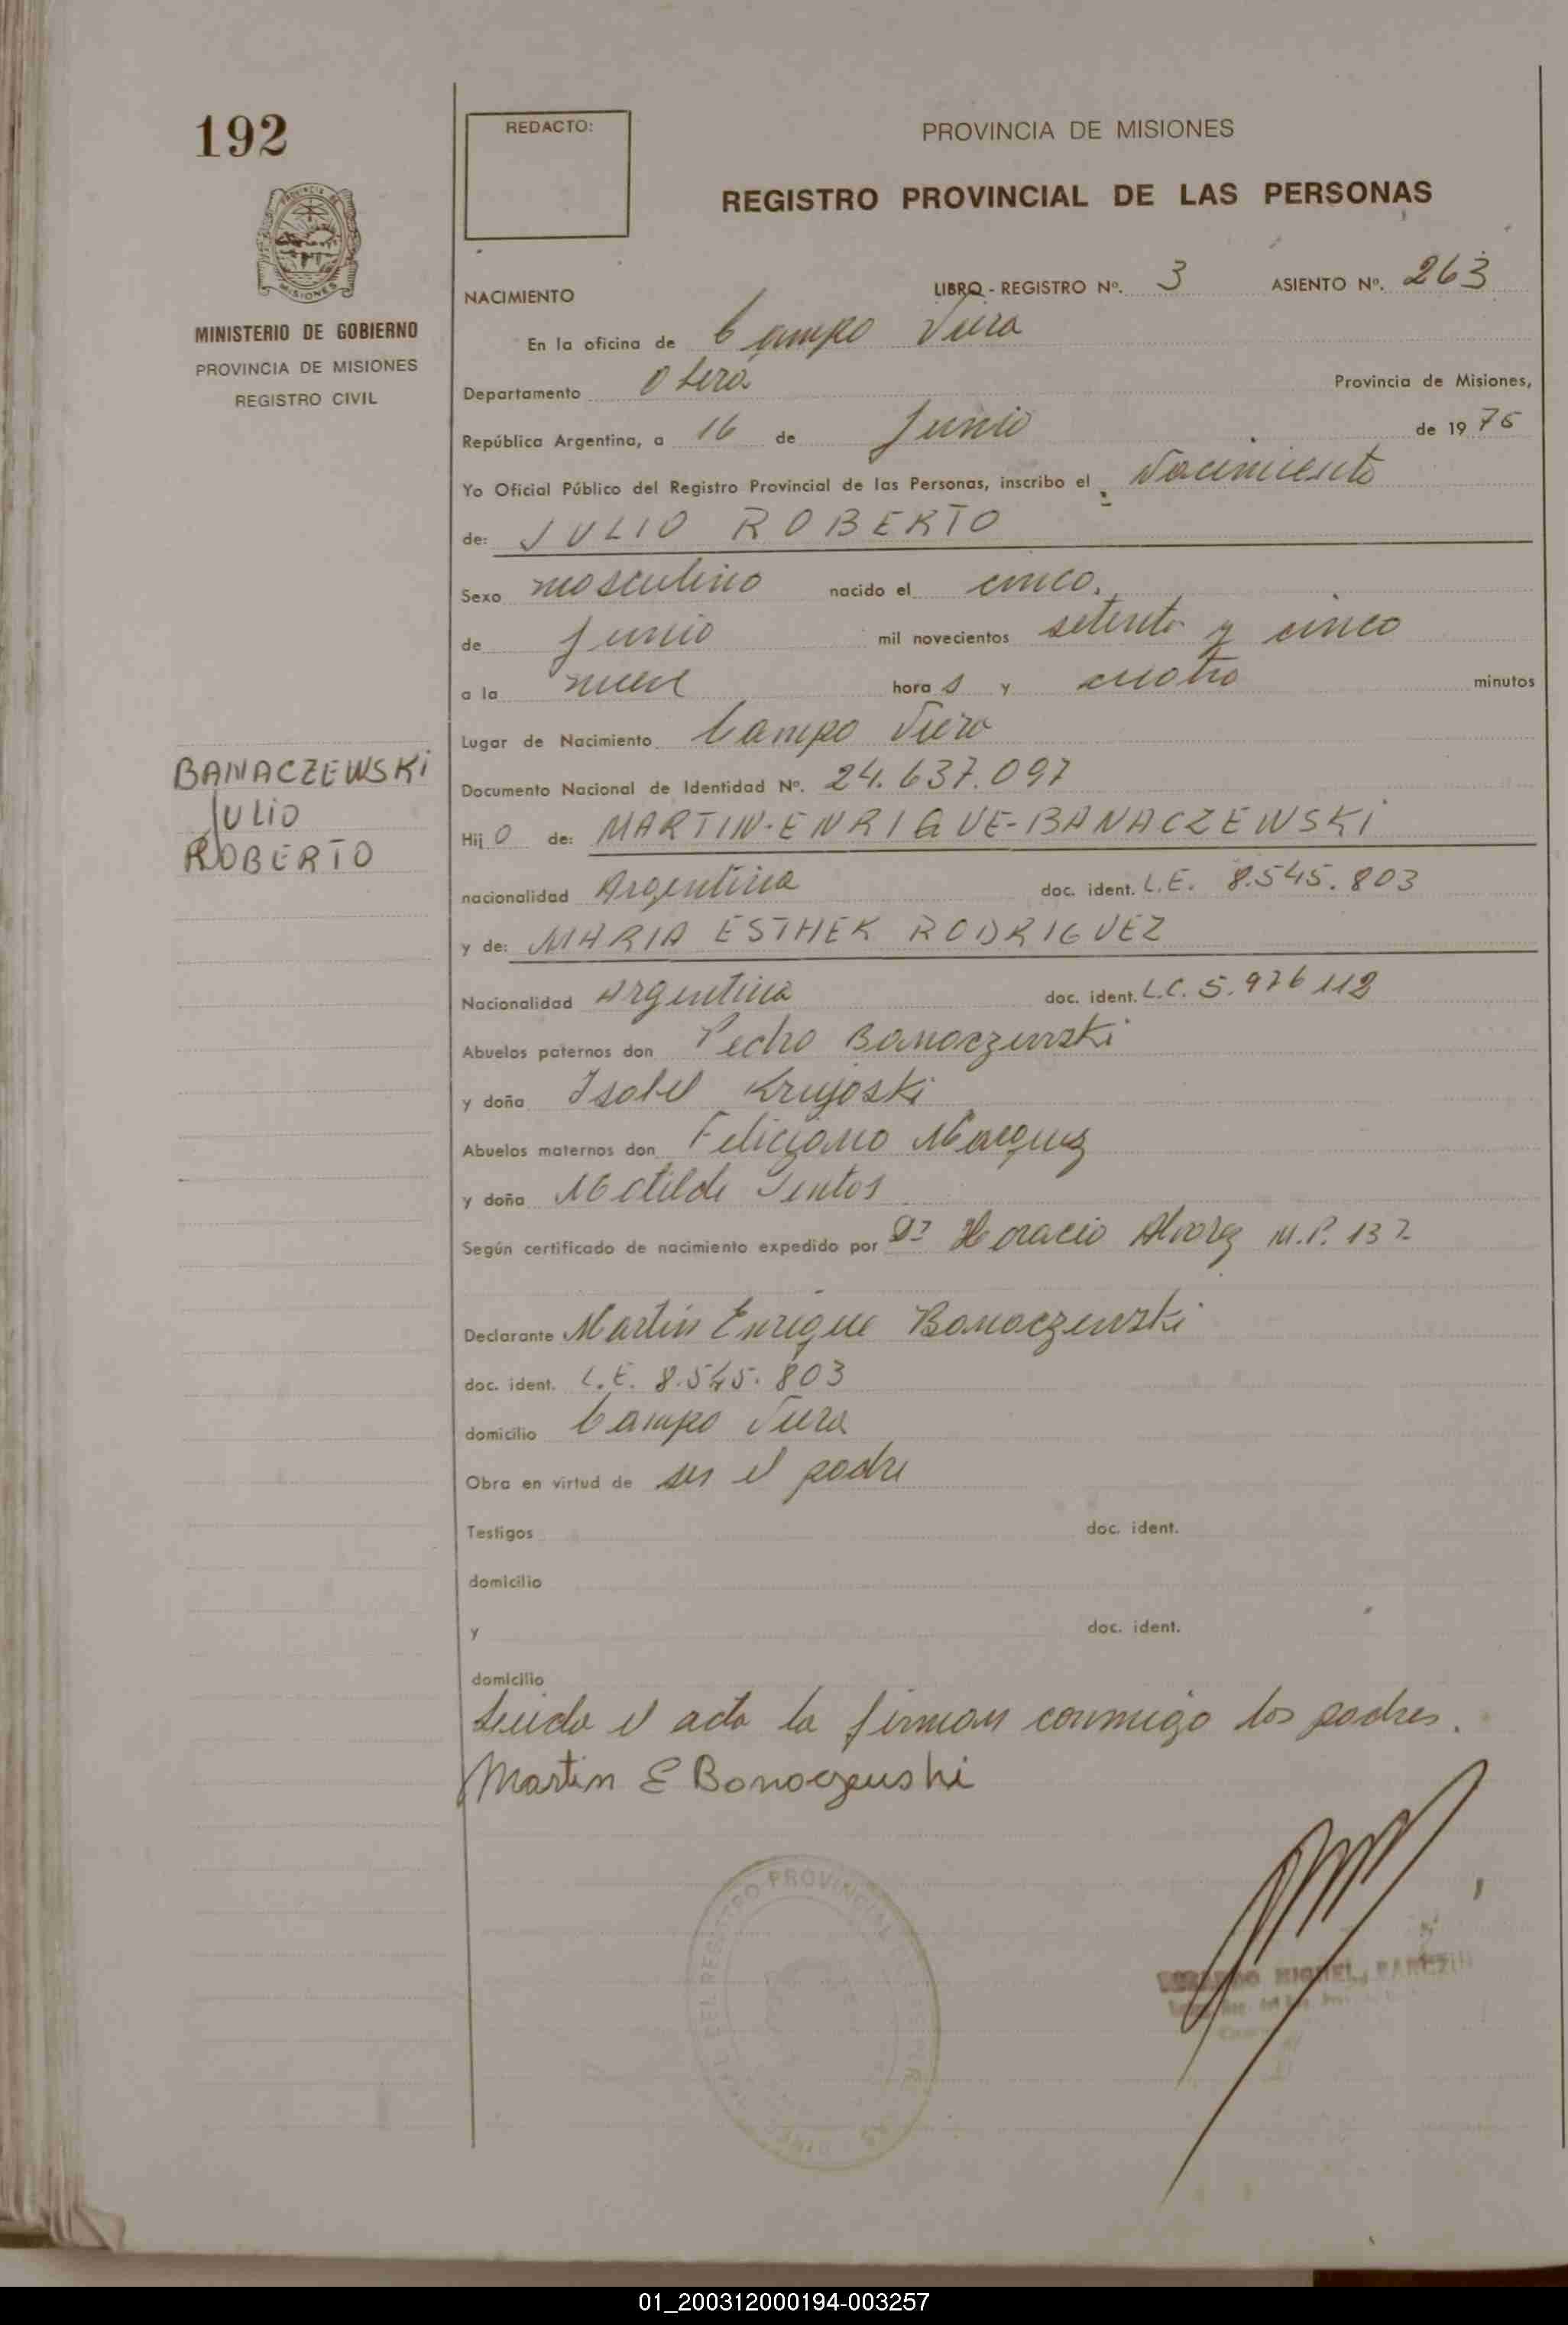 192
REDACTO:
PROVINCIA DE MISIONES
REGISTRO PROVINCIAL DE LAS PERSONAS
MISIONES
MINISTERIO DE GOBIERNO
PROVINCIA DE MISIONES
REGISTRO CIVIL
NACIMIENTO
LIBRO - REGISTRO Nº. 3 ASIENTO Nº. 263
En la oficina de Campo Viera
Departamento Oberá Provincia de Misiones,
República Argentina, a 16 de Junio de 19 75
Yo Oficial Público del Registro Provincial de las Personas, inscribo el Nacimiento
de: JULIO ROBERTO
Sexo masculino nacido el cinco.
de Junio mil novecientos setenta y cinco
a la nueve hora s y cuatro minutos
Lugar de Nacimiento Campo Viera
BANACZEWSKI
JULIO
ROBERTO
Documento Nacional de Identidad Nº. 24.637.097
Hij O de: MARTIN-ENRIQUE-BANACZEWSKI
nacionalidad Argentina doc. ident. L.E. 8.545.803
y de: MARIA ESTHER RODRIGUEZ
Nacionalidad Argentina doc. ident. L.C. 5.976 112
Abuelos paternos don Pedro Banaczewski
y doña Isabel
Abuelos maternos don Feliciano
y doña Matilde
Según certificado de nacimiento expedido por Dr Horacio Alvarez M.P. 137
Declarante Martin Enrique Banaczewski
doc. ident. L.E. 8.545.803
domicilio Campo Viera
Obra en virtud de ser el padre
Testigos doc. ident.
domicilio
y doc. ident.
domicilio
Leida el acta la firman conmigo los padres.
Martin E Banaczewski
REGISTRO PROVINCIAL
MIGUEL
01_200312000194-003257